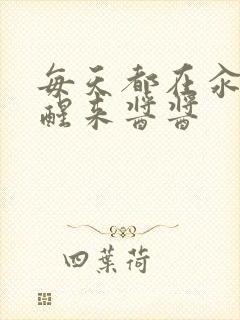 每天都在汆
醒来酱酱
四葉荷